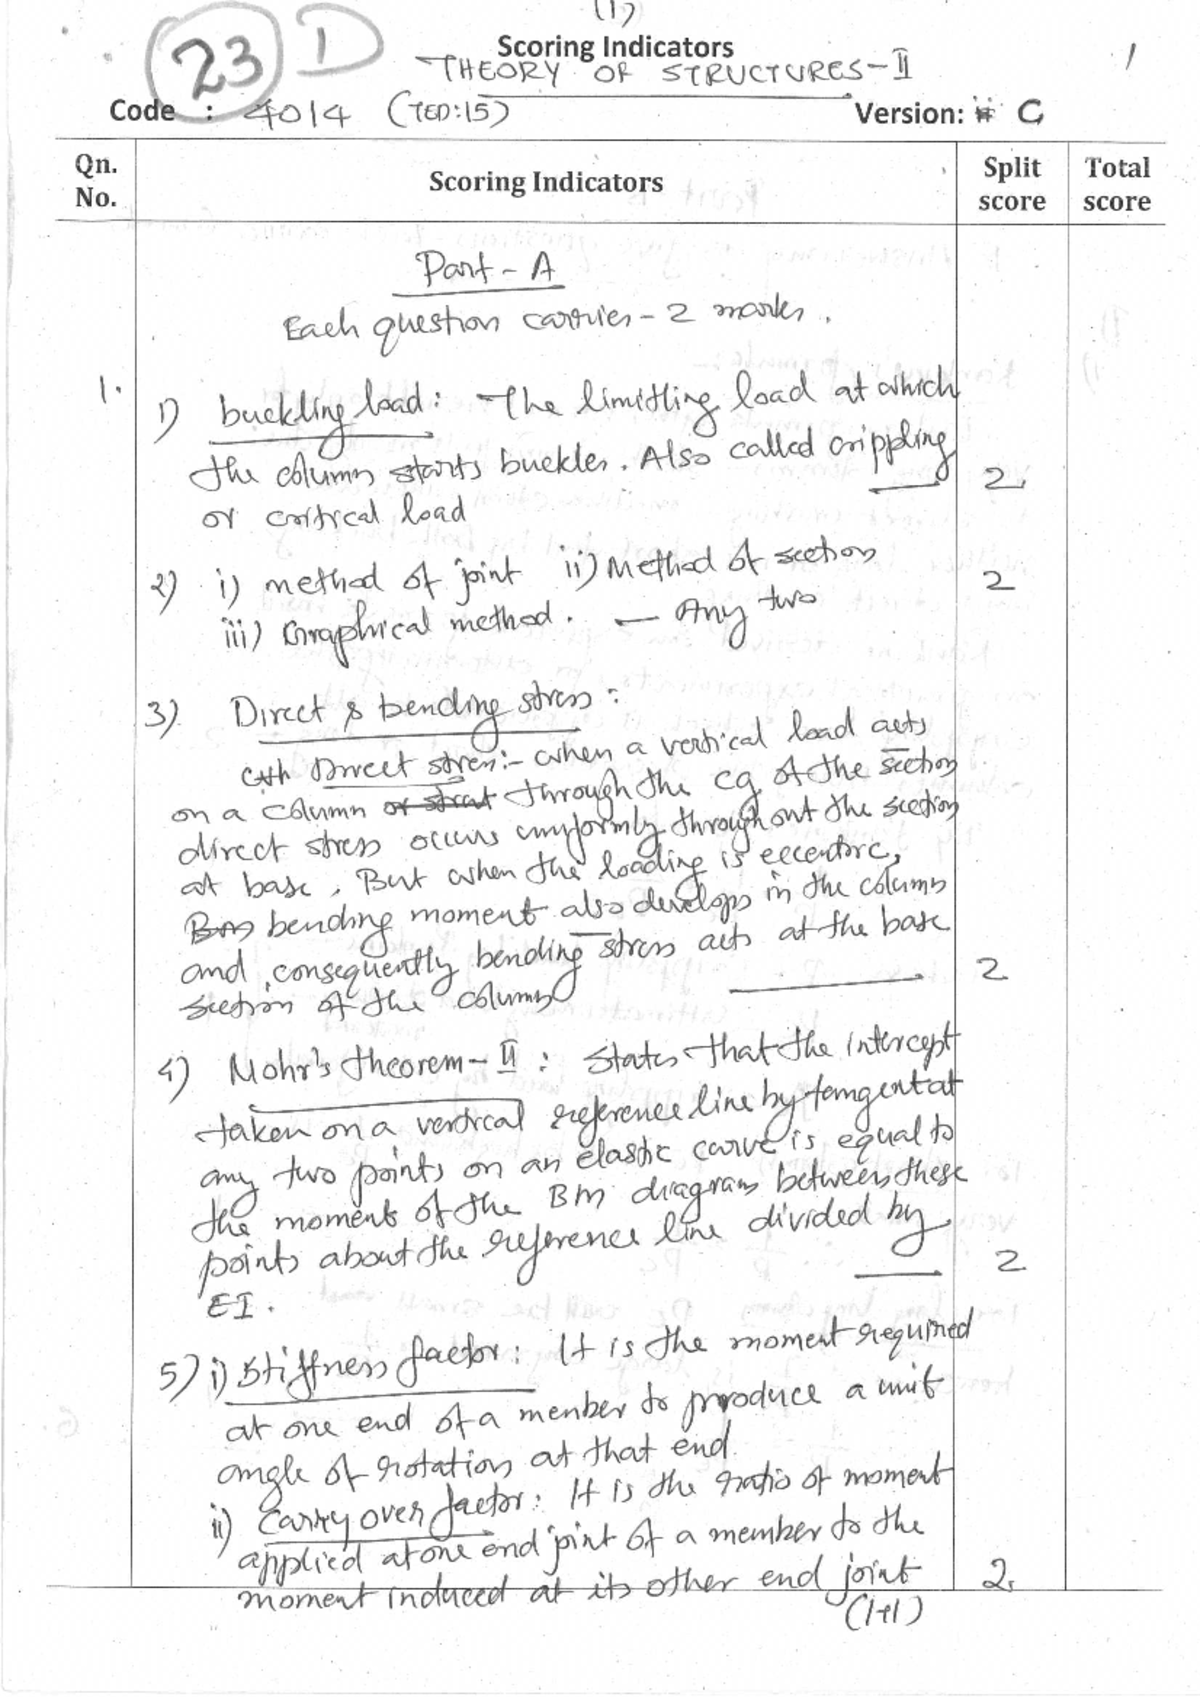 (1)
23 D
Scoring Indicators
THEORY OF STRUCTURES-II
1
Code : 4014 (TED:15) Version: C
Qn. No. Scoring Indicators Split score Total score
Part - A
Each question carries - 2 marks.
1.
1) buckling load: The limitling load at which
the column starts buckles. Also called crippling
or critical load 2
2) i) method of joint ii) Method of section
iii) Graphical method. — Any two 2
3) Direct & bending stress:
Direct stress:- when a vertical load acts
on a column or strut through the cg of the section
direct stress occurs unyformly throughout the section
at base. But when the loading is eccentric,
BM bending moment also develops in the column
and consequently bending stress acts at the base
section of the column 2
4) Mohr's theorem - II : States that the intercept
taken on a vertical reference line by tangent at
any two points on an elastic curve is equal to
the moment of the BM diagram between these
points about the reference line divided by
EI. 2
5) i) Stiffness factor: It is the moment required
at one end of a member to produce a unit
angle of rotation at that end.
ii) Carry over factor: It is the ratio of moment
applied at one end joint of a member to the
moment induced at its other end joint 2
(1+1)